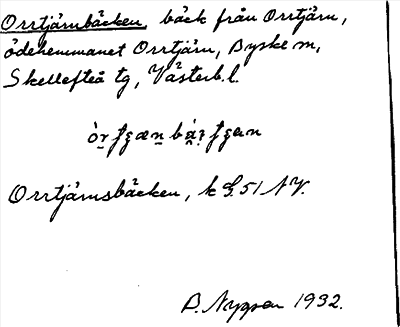 Orrtjärnbäcken, bäck från Orrtjärn,
ödehemmanet Orrtjärn, Byske sn,
Skellefteå tg, Västerb. l.
Orrtjärnsbäcken, k G. 51 NV.
1932.